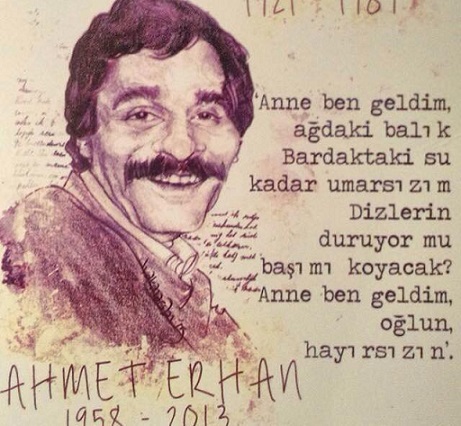 'Anne ben geldim,
ağdaki balı k
Bardaktaki su
kadar umarsı zı m
Dizlerin
duruyor mu
başı mı koyacak?
Anne ben geldim,
oğlun,
hayı rsı zı n'.
AHMET ERHAN
1958 - 2013